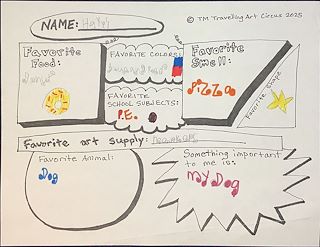 © TM Travelling Art Circus 2025
NAME:
Favorite Food:
Favorite Colors:
Favorite Smell:
Pizza
Favorite Shape
FAVORITE SCHOOL SUBJECTS:
P.E.
Favorite art supply:
Favorite Animal:
Dog
Something important to me is:
my Dog